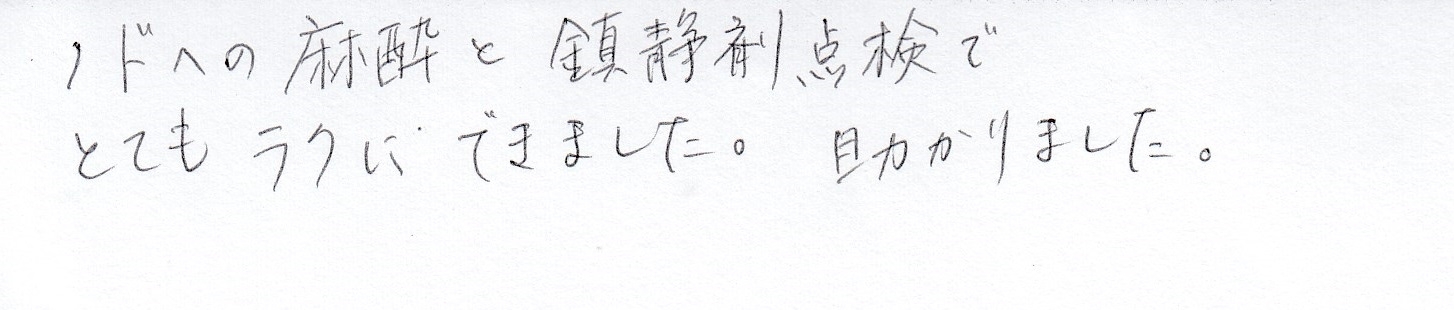 ノドへの麻酔と鎮静剤点検で
とてもラクにできました。助かりました。